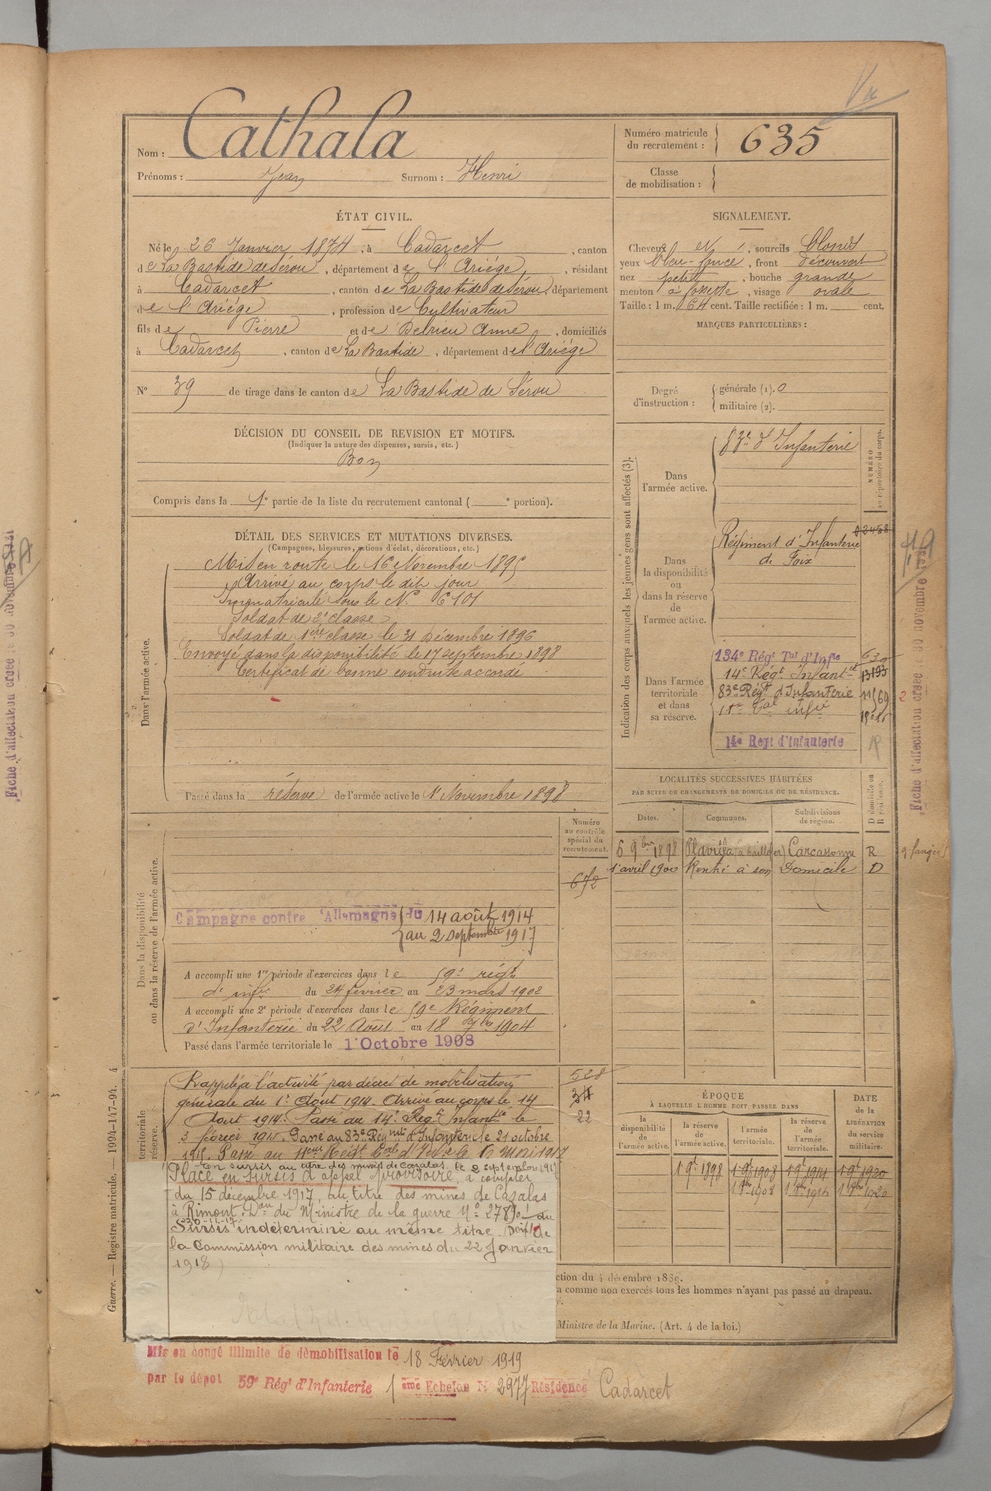 Nom : Cathala
Prénoms : Jean Surnom : Henri
Numéro matricule du recrutement : 635
Classe de mobilisation :
ÉTAT CIVIL.
Né le 26 Janvier 1874, à Cadarcet, canton
de La Bastide de Sérou, département de l'Ariége, résidant
à Cadarcet, canton de La Bastide de Sérou, département
de l'Ariége, profession de Cultivateur
fils de Pierre et de Delrieu Anne, domiciliés
à Cadarcet, canton de La Bastide, département de l'Ariége
N° 39 de tirage dans le canton de La Bastide de Sérou
SIGNALEMENT.
Cheveux, sourcils blonds
yeux bleu-foncé, front découvert
nez petit, bouche grande
menton à fossette, visage ovale
Taille : 1 m. 64 cent. Taille rectifiée : 1 m. cent.
MARQUES PARTICULIÈRES :
Degré d'instruction : générale (1). 0
militaire (2).
DÉCISION DU CONSEIL DE REVISION ET MOTIFS.
(Indiquer la nature des dispenses, sursis, etc.)
Bon
Compris dans la 1e partie de la liste du recrutement cantonal ( e portion).
DÉTAIL DES SERVICES ET MUTATIONS DIVERSES.
(Campagnes, blessures, actions d'éclat, décorations, etc.)
Dans l'armée active.
Mis en route le 16 Novembre 1895
Arrivé au corps le dit jour
Immatriculé sous le N° 6101
Soldat de 2e classe
Soldat de 1ère classe le 31 Décembre 1896
Envoyé dans la disponibilité le 17 septembre 1898
Certificat de bonne conduite accordé
Passé dans la réserve de l'armée active le 1er Novembre 1898
Indication des corps auxquels les jeunes gens sont affectés (3).
NUMÉRO au répertoire du corps.
Dans l'armée active. 83e d'Infanterie
Dans la disponibilité ou dans la réserve de l'armée active.
Régiment d'Infanterie
de Foix
Dans l'armée territoriale et dans sa réserve.
134e Régt Tal d'Infie 630
14e Régt Infantie 13193
83e Régt d'Infanterie 11569
14e Regt d'Infanterie
LOCALITÉS SUCCESSIVES HABITÉES
PAR SUITE DE CHANGEMENTS DE DOMICILE OU DE RÉSIDENCE.
Dates. Communes. Subdivisions de région. D domicile ou R résidence.
6 9bre 1898 Carcassonne R
1er avril 1900 Rentré à son Domicile D
Dans la disponibilité ou dans la réserve de l'armée active.
Numéro au contrôle spécial du recrutement.
672
Campagne contre l'Allemagne du 14 août 1914
au 2 Septembre 1917
A accompli une 1re période d'exercices dans le 59e régt
d'infie du 24 février au 23 mars 1902
A accompli une 2e période d'exercices dans le 59e Régiment
d'Infanterie du 22 Août au 18 7bre 1904
Passé dans l'armée territoriale le 1er Octobre 1908
Rappelé à l'activité par décret de mobilisation
générale du 1er Août 1914. Arrivé au corps le 14
Août 1914. Passé au 14e Régt Infantie le
3 février 1915. Passé au 83e Régiment d'Infanterie le 21 octobre
1915.
en sursis au titre des mines de Cazalas, le 2 septembre 1917
Placé en sursis d'appel provisoire, à compter
du 15 décembre 1917, au titre des mines de Cazalas
à Rimont. Don du Ministre de la guerre N° 27890 du
30-11-17
Sursis indéterminé au même titre Don de
la Commission militaire des mines du 22 Janvier
1918
ÉPOQUE
À LAQUELLE L'HOMME DOIT PASSER DANS
la disponibilité de l'armée active. la réserve de l'armée active. l'armée territoriale. la réserve de l'armée territoriale.
DATE de la LIBÉRATION du service militaire.
1 9e 1898 1 9e 1908 1 9e 1914 1 9e 1920
ction du 4 décembre 1889.
a comme non exercés tous les hommes n'ayant pas passé au drapeau.
Ministre de la Marine. (Art. 4 de la loi.)
Mis en congé illimité de démobilisation le 18 Février 1919
par le dépôt 59e Régt d'Infanterie 1 eme Echelon N° 2977 Résidence Cadarcet
Guerre. — Registre matricule. — 1994-147-94.
Fiche d'affectation créée le 30 novembre 1931